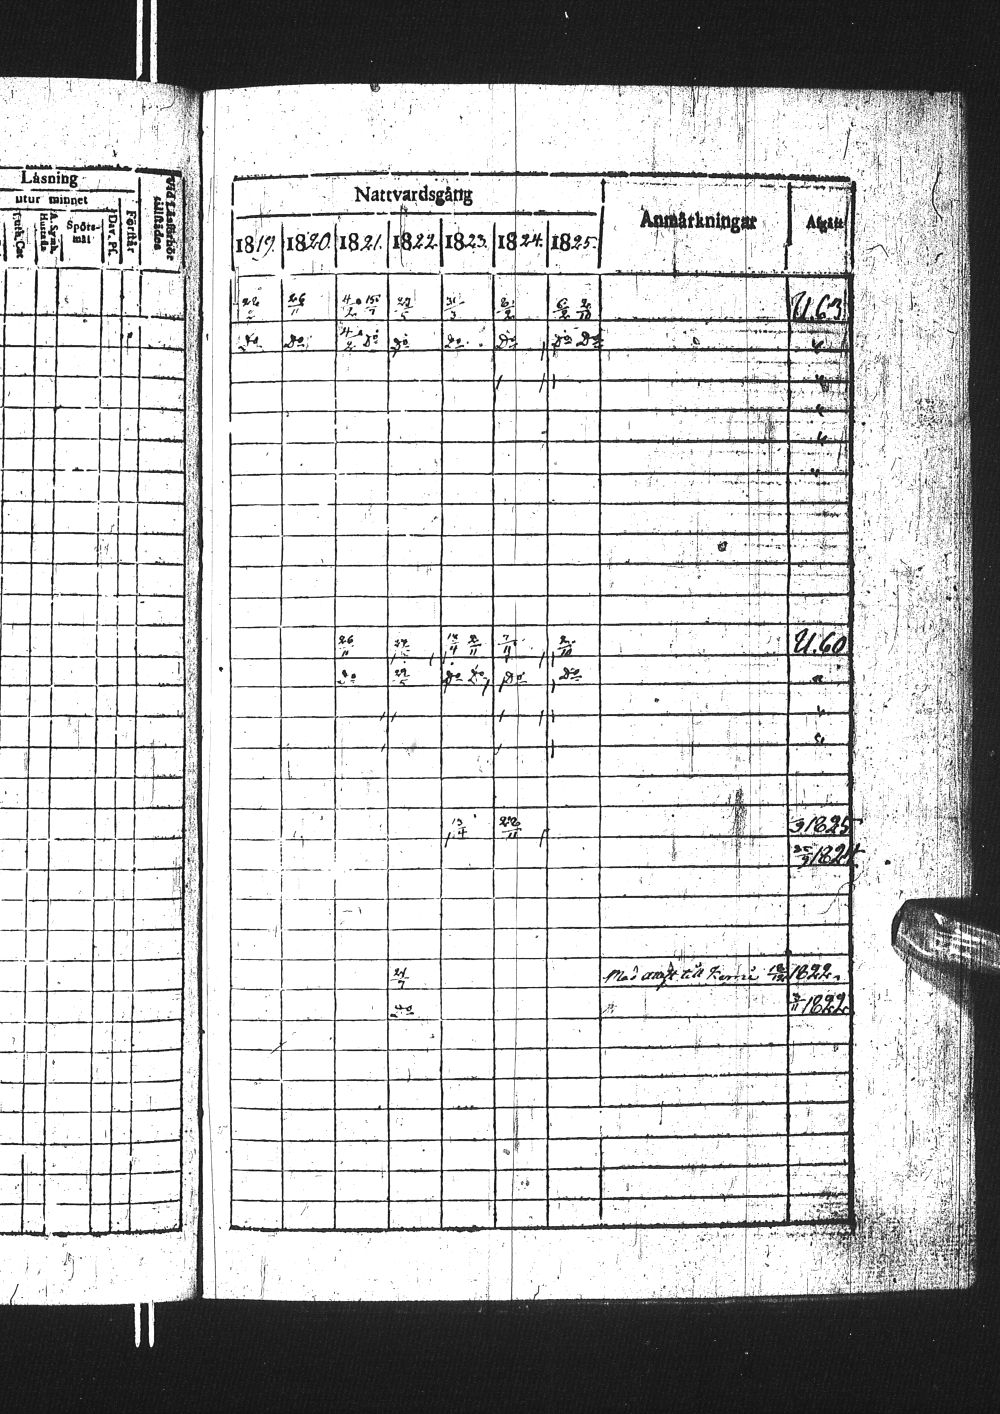 Läsning
utur minnet
Luth. Cat
A. Symb. Hustafla
Spörs-
mål
Dav. Ps.
Förstår
Vid Läsförhör
tillstädes
Nattvardsgång
Anmärkningar
Afgått
1819. 1820. 1821. 1822. 1823. 1824. 1825.
26/11 4/2 15/7 27/5 31/3 8/2 6/2 2/10 U. 63
Do Do 4/2 Do Do Do Do Do Do "
"
"
"
"
26/11 27/5 13/4 2/11 7/11 2/10 U. 60
Do 27/5 Do Do Do Do "
"
"
13/4 28/11 1825
1824
21/7 Med attest till 1822
Do " 3/11 1822